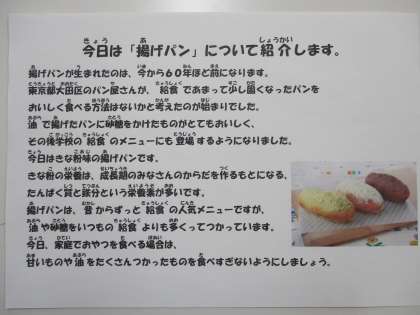 今日は「揚げパン」について紹介します。
揚げパンが生まれたのは、今から６０年ほど前になります。
東京都大田区のパン屋さんが、給食であまって少し固くなったパンを
おいしく食べる方法はないかと考えたのが始まりでした。
油で揚げたパンに砂糖をかけたものがとてもおいしく、
その後学校の給食のメニューにも登場するようになりました。
今日はきな粉味の揚げパンです。
きな粉の栄養は、成長期のみなさんのからだを作るもとになる、
たんぱく質と鉄分という栄養素が多いです。
揚げパンは、昔からずっと給食の人気メニューですが、
油や砂糖をいつもの給食よりも多くつかっています。
今日、家庭でおやつを食べる場合は、
甘いものや油をたくさんつかったものを食べすぎないようにしましょう。